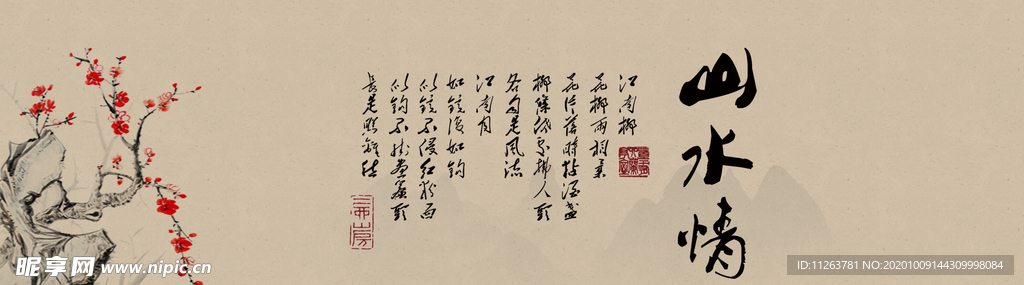 山水情
江南柳
花柳兩相柔
花片落時粘酒盞
柳條低處拂人頭
各自是風流
江南月
如鏡復如鉤
似鏡不侵紅粉面
似鉤不掛畫簾頭
長是照離愁
昵享网 www.nipic.cn
ID:11263781 NO:20201009144309998084